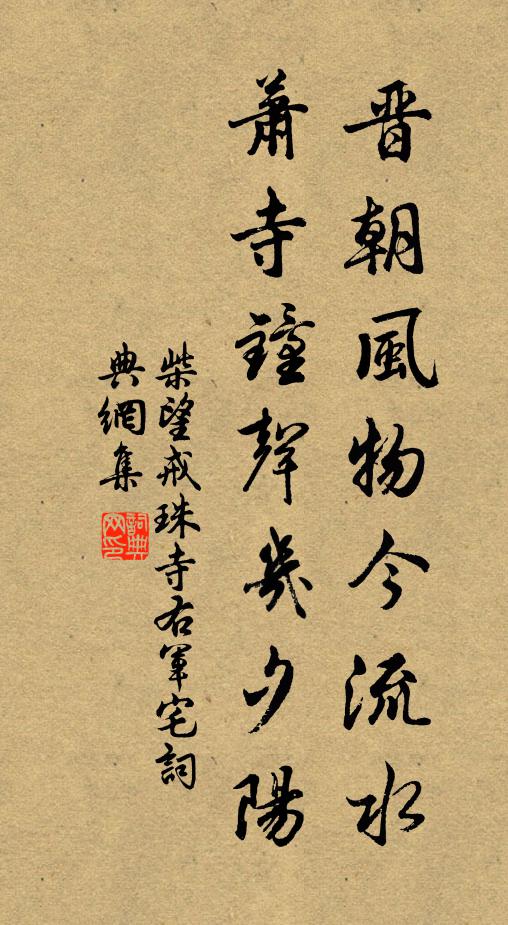 晉朝風物今流水
蕭寺鐘聲幾夕陽
柴望戒珠寺右軍宅詞
典網集
詞典
网印